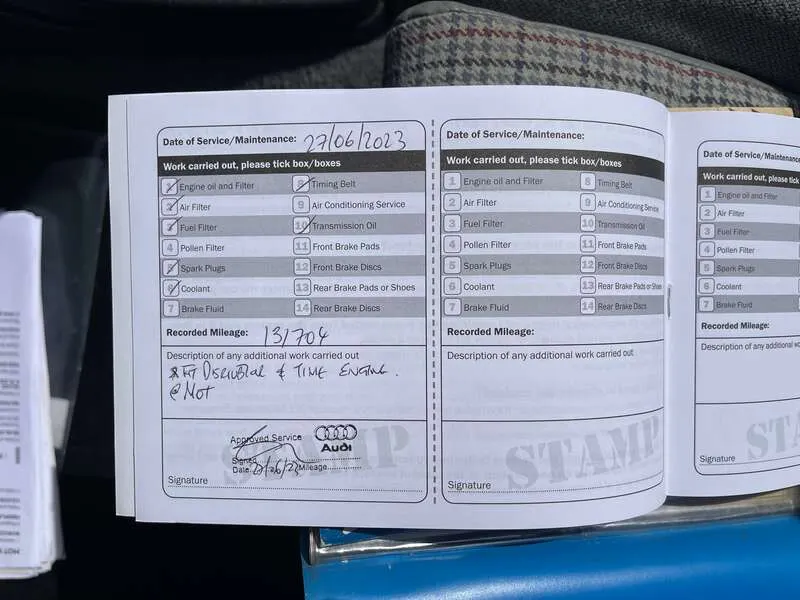 Date of Service/Maintenance: 27/06/2023
Work carried out, please tick box/boxes
1 Engine oil and Filter
2 Air Filter
3 Fuel Filter
4 Pollen Filter
5 Spark Plugs
6 Coolant
7 Brake Fluid
8 Timing Belt
9 Air Conditioning Service
10 Transmission Oil
11 Front Brake Pads
12 Front Brake Discs
13 Rear Brake Pads or Shoes
14 Rear Brake Discs
Recorded Mileage: 131704
Description of any additional work carried out
& TIME ENGINE.
@ MOT
Approved Service
Audi
Signed
Date 27/06/23 Mileage
STAMP
Signature
Date of Service/Maintenance:
Work carried out, please tick box/boxes
1 Engine oil and Filter
2 Air Filter
3 Fuel Filter
4 Pollen Filter
5 Spark Plugs
6 Coolant
7 Brake Fluid
8 Timing Belt
9 Air Conditioning Service
10 Transmission Oil
11 Front Brake Pads
12 Front Brake Discs
13 Rear Brake Pads or Shoes
14 Rear Brake Discs
Recorded Mileage:
Description of any additional work carried out
STAMP
Signature
Date of Service/Maintenance:
Work carried out, please tick
1 Engine oil and Filter
2 Air Filter
3 Fuel Filter
4 Pollen Filter
5 Spark Plugs
6 Coolant
7 Brake Fluid
Recorded Mileage:
Description of any additional wo
STA
Signature